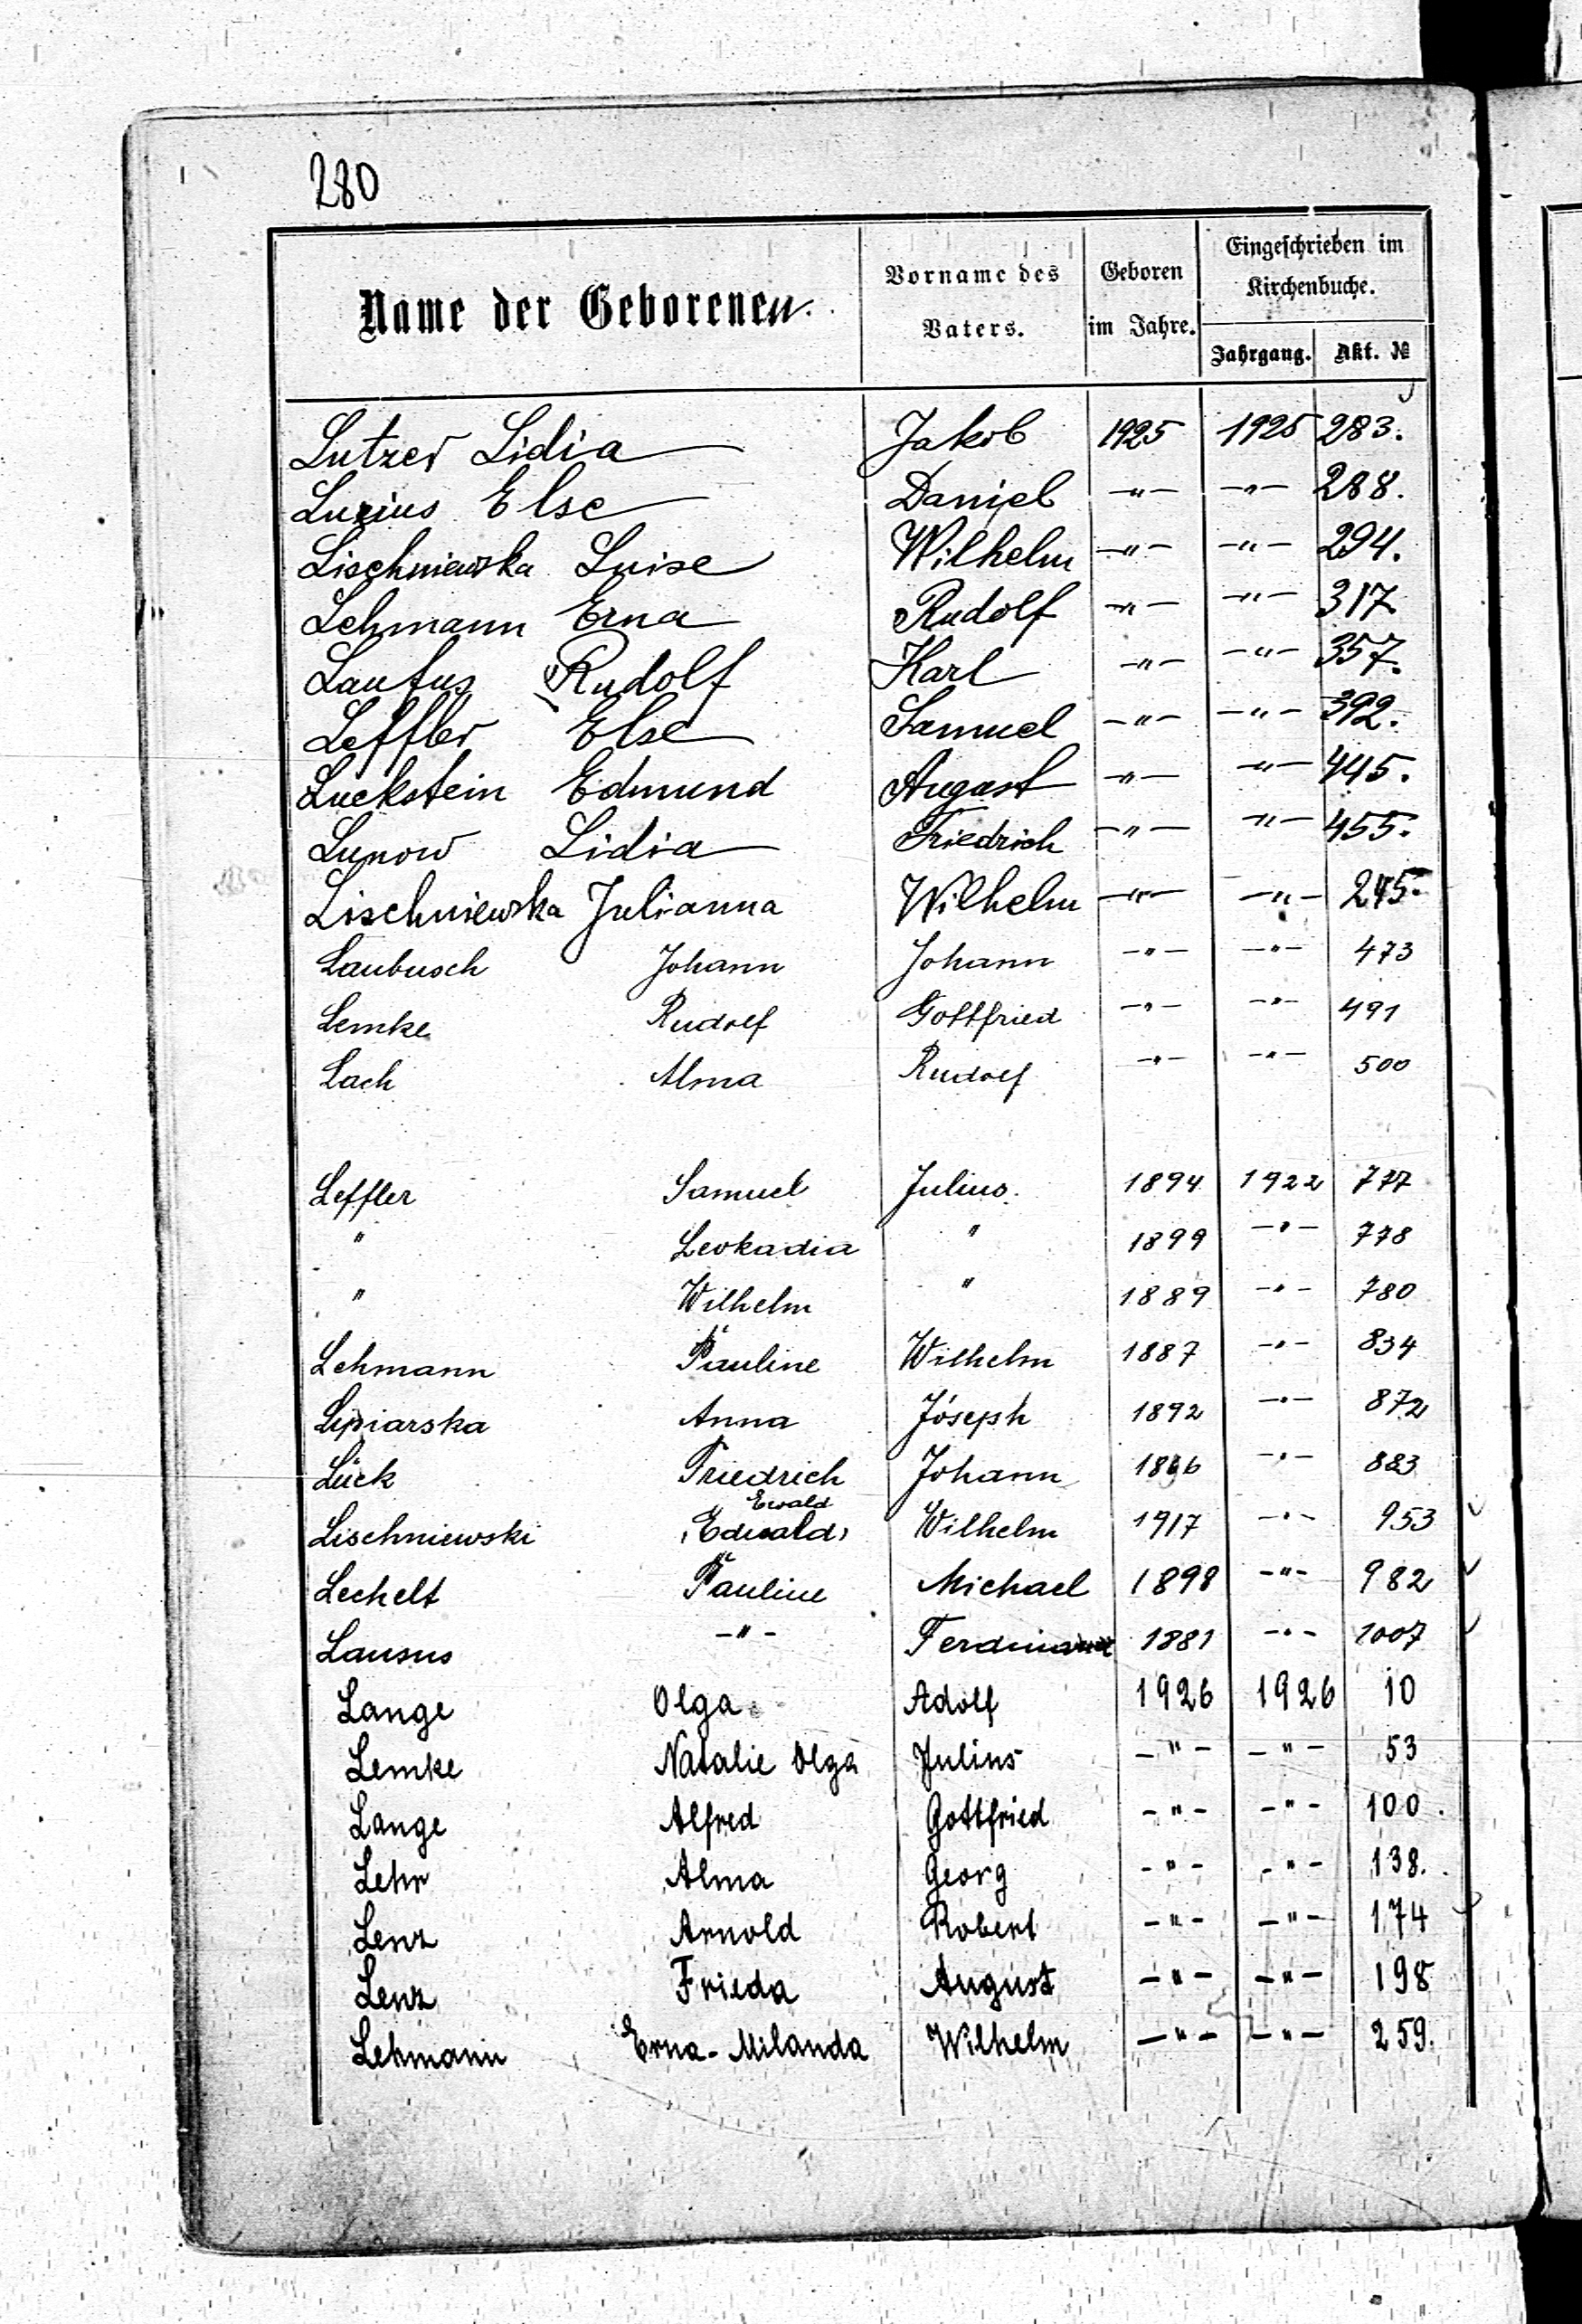 280
Name der Geborenen. Vorname des Vaters. Geboren im Jahre. Eingeschrieben im Kirchenbuche. Jahrgang. Akt. №
Lutzer Lidia Jakob 1925 1925 283.
Luzius Else Daniel -"- -"- 288.
Lischniewska Luise Wilhelm -"- -"- 294.
Lehmann Erna Rudolf -"- -"- 317
Laufus Rudolf Karl -"- -"- 357.
Leffler Else Samuel -"- -"- 392.
Luckstein Edmund August -"- -"- 445.
Lunow Lidia Friedrich -"- -"- 455.
Lischniewska Julianna Wilhelm -"- -"-
Laubusch Johann Johann -"- -"- 473
Lemke Rudolf Gottfried -"- -"- 491
Lach Alma Rudolf -"- -"- 500
Leffler Samuel Julius. 1894 1922 777
" Leokadia " 1899 -"- 778
" Wilhelm " 1889 -"- 780
Lehmann Pauline Wilhelm 1887 -"- 834
Lipiarska Anna Jóseph 1892 -"- 872
Lück Friedrich Johann -"- 883
Ewald
Lischniewski (Edwald) Wilhelm 1917 -"- 953
Lechelt Pauline Michael 1898 -"- 982
Lausus -"- Ferdinand 1881 -"- 1007
Lange Olga Adolf 1926 1926 10
Lemke Natalie Olga Julius -"- -"- 53
Lange Alfred Gottfried -"- -"- 100.
Lehr Alma Georg -"- -"- 138.
Lenz Arnold Robert -"- -"- 174
Lenz Frieda August -"- -"- 198
Lehmann Erna-Milanda Wilhelm -"- -"- 259.